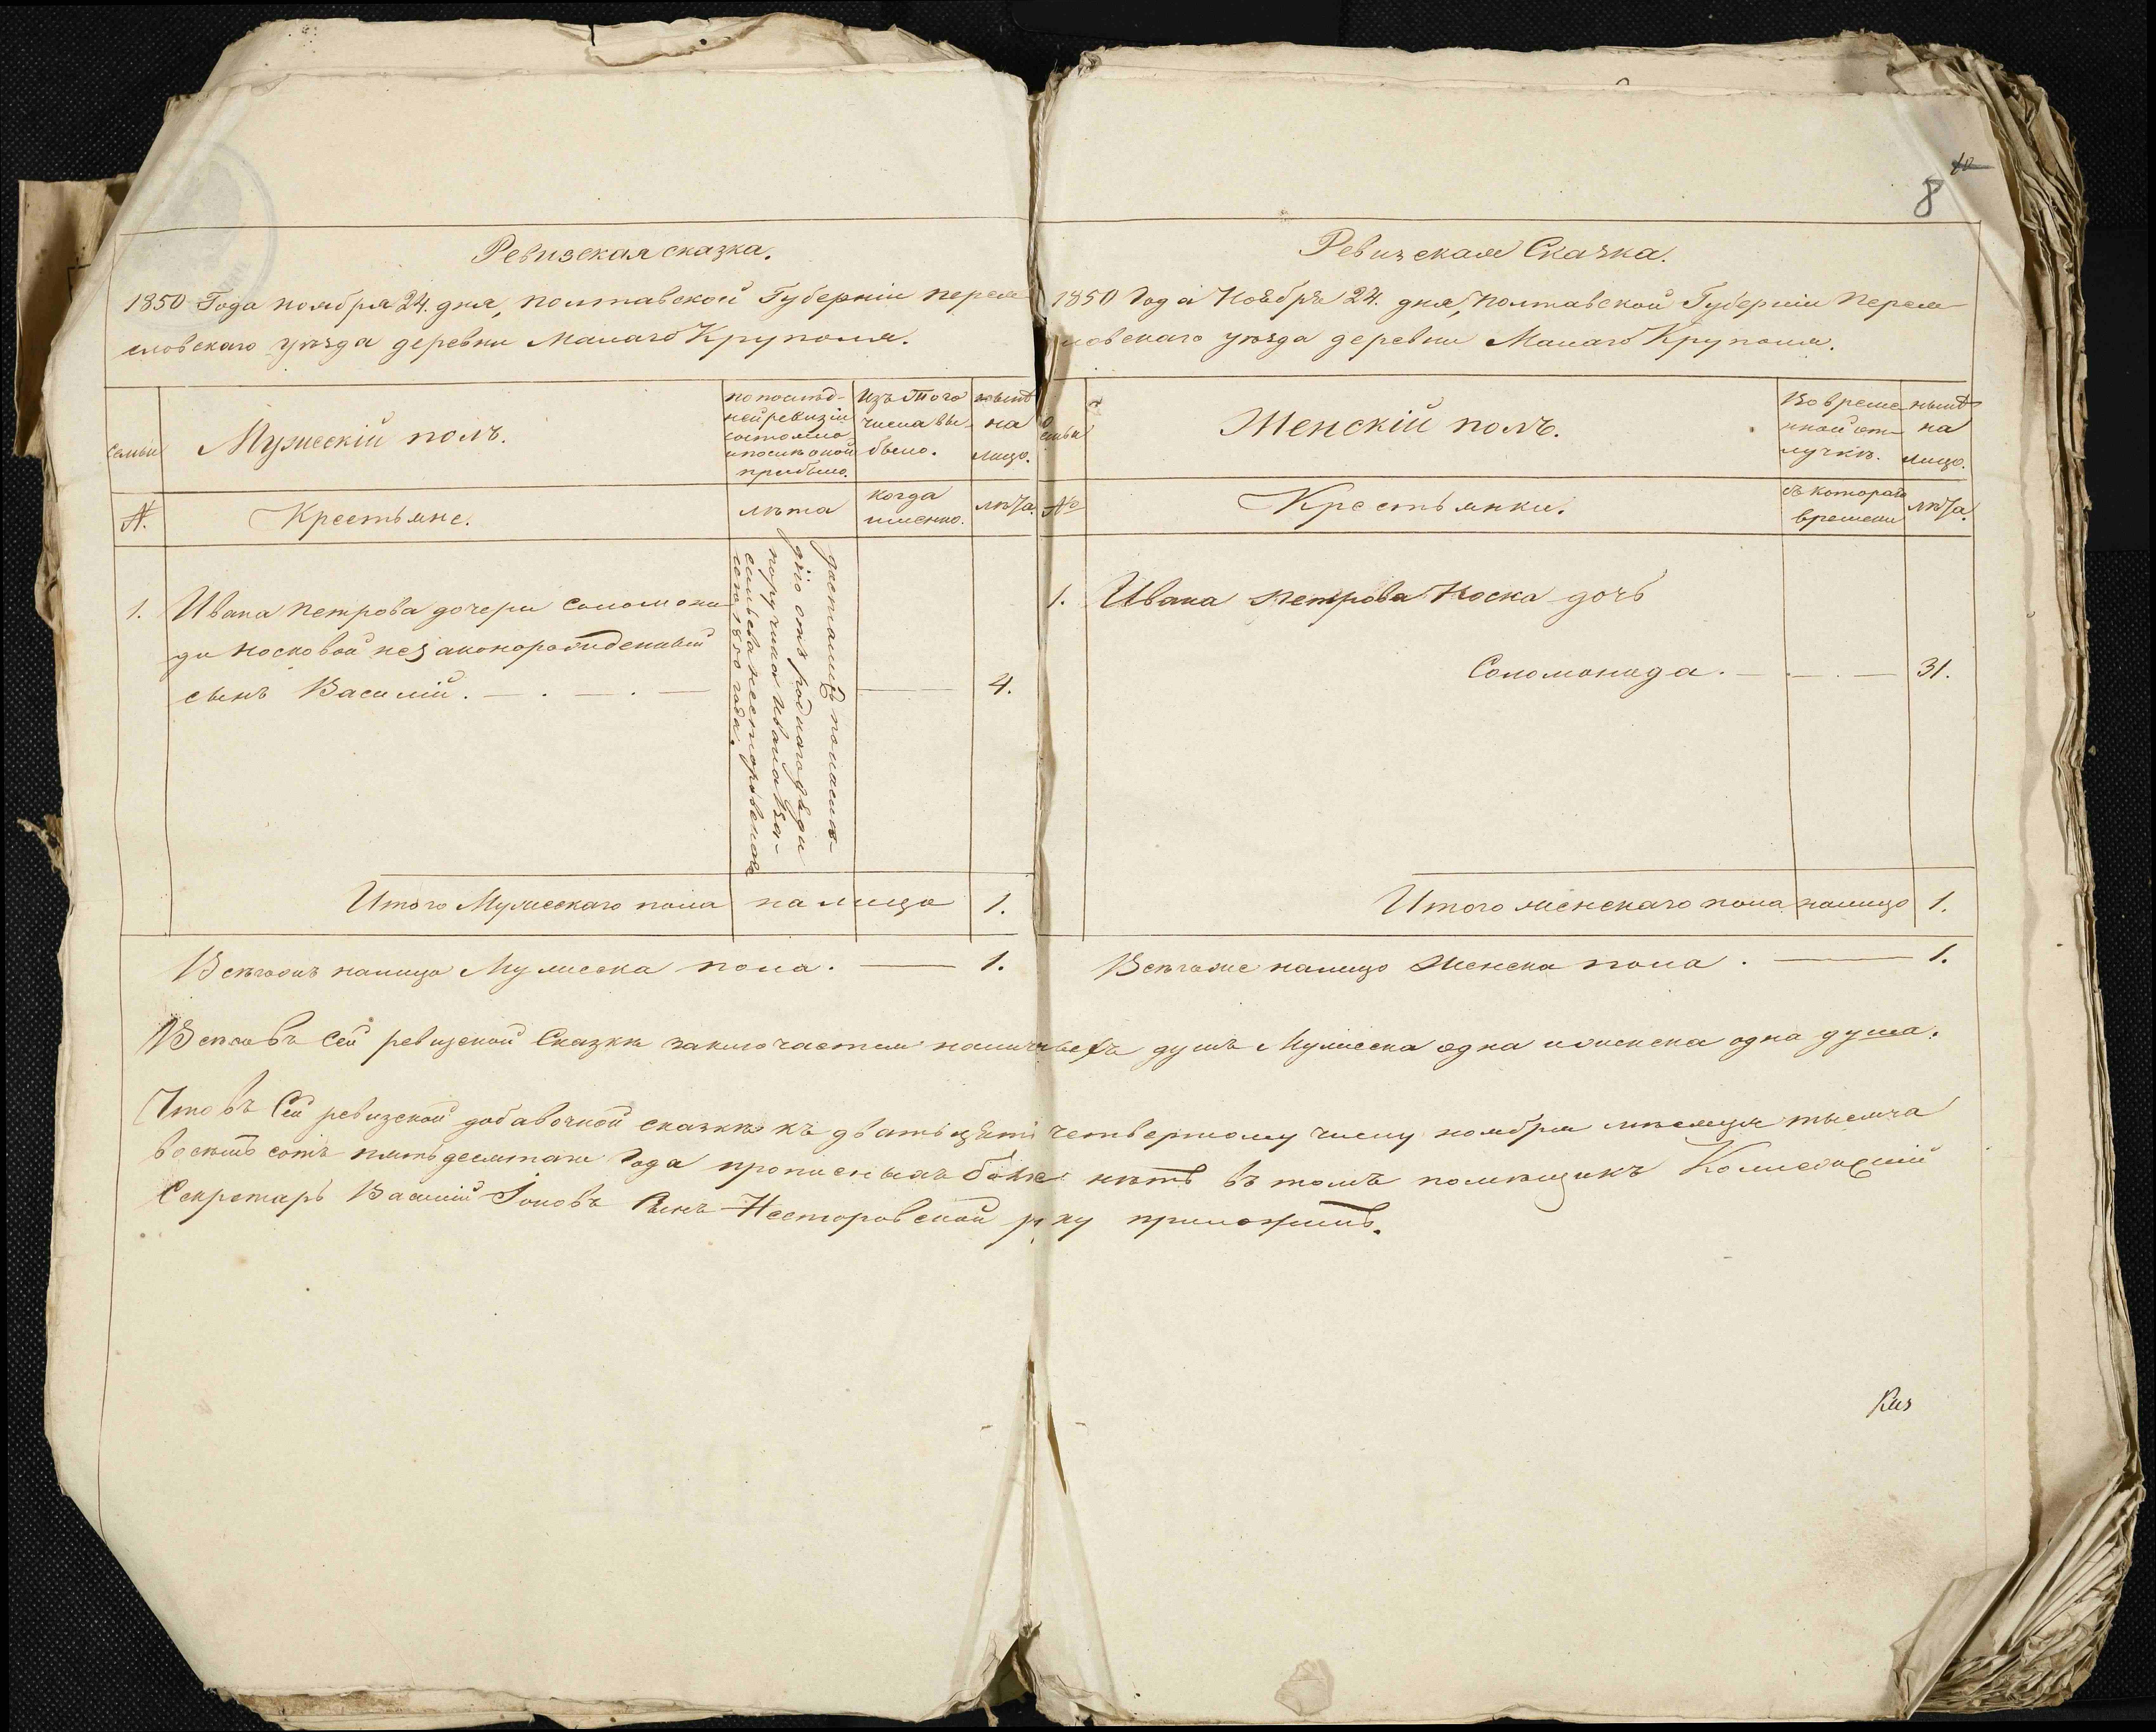 Ревизская сказка.
1850 Года ноября 24. дня, полтавской Губерніи перея
словскаго уѣзда деревни Малаго Крупола.
семьи
Мужескій полъ.
по послѣд-
ней ревизіи
состояло
и послѣ оной
прибыло.
Изъ того
числа вы-
было.
нынѣ
на
лицо.
№.
Крестьяне.
лѣта
когда
именно.
лѣта.
1. Ивана Петрова дочери Соломони
ды Носковой незаконорожденный
сынъ Василій. — . — . — — 4.
Достался по наслѣ-
дію отъ роднаго дяди
поручика Ивана Ва-
сильева Нестеровскаго
1850 года.
Итого Мужескаго пола на лицо 1.
Всего налицо Мужеска пола. — 1.
8
10
Ревизская Сказка.
1850 Года Ноября 24. дня, Полтавской Губерніи Перея
словскаго уѣзда деревни Малаго Крупола.
семьи
Женскій полъ.
Во време
нной от-
лучкѣ.
нынѣ
на
лицо.
№
Крестьянки.
съ котораго
времени
лѣта.
1. Ивана Петрова Носка дочь
Соломонида. — . — . — 31.
Итого женскаго пола налицо 1.
Всего же налицо Женска пола. — 1.
Всего въ сей ревизской Сказкѣ заключается наличныхъ душъ Мужеска одна и женска одна душа.
Что въ Сей ревизской добавочной сказкѣ къ двадцать четвертому числу ноября мѣсяца тысяча
восемь сотъ пятьдесятаго Года прописныхъ нѣтъ въ томъ помѣщикъ Колежскій
Секретарь Василій Іововъ Сынъ Нестеровской руку приложилъ.